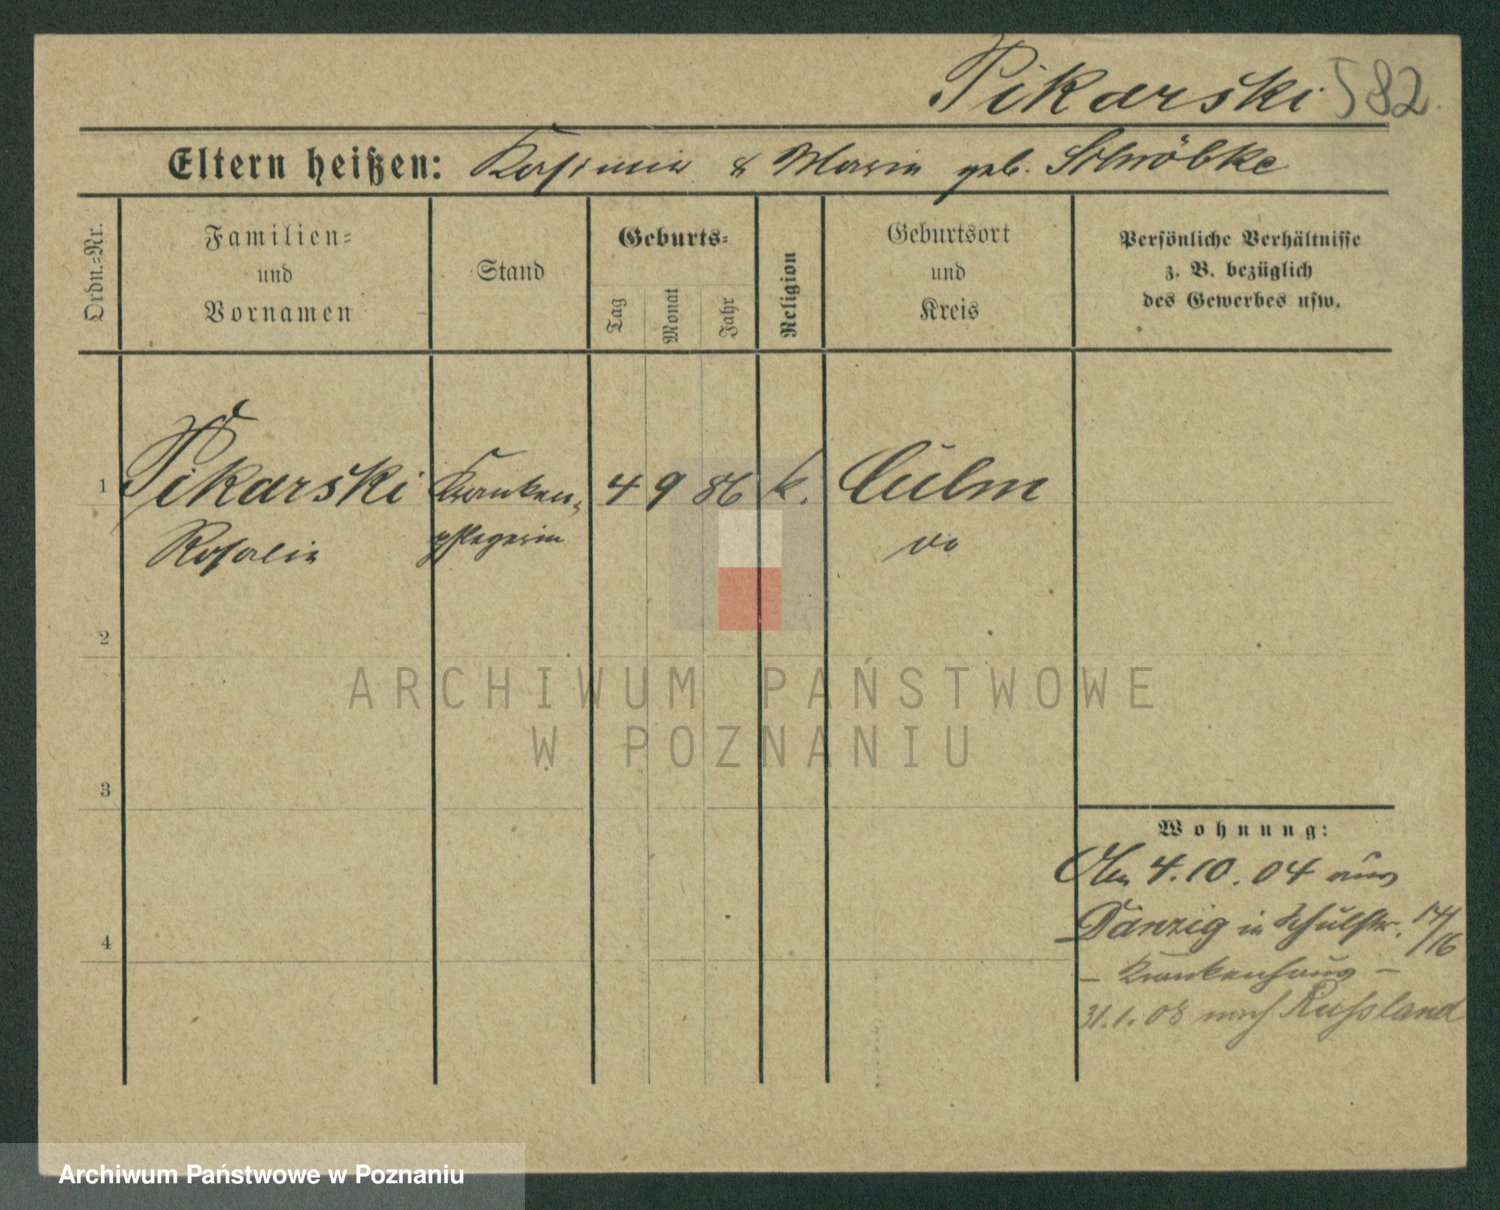 Pikarski 582.
Eltern heißen: Kasimir & Maria geb. Schröbke
Ordn.-Nr.
Familien-
und
Vornamen
Stand
Geburts-
Tag
Monat
Jahr
Religion
Geburtsort
und
Kreis
Persönliche Verhältnisse
z. B. bezüglich
des Gewerbes usw.
1 Pikarski Kranken- 4 9 86 k. Culm
Rosalie pflegerin do
2
3
4
ARCHIWUM PAŃSTWOWE
W POZNANIU
Wohnung:
4.10.04 aus
Danzig in Schulstr. 14/16
– Krankenhaus –
31.1.08 nach Russland
Archiwum Państwowe w Poznaniu